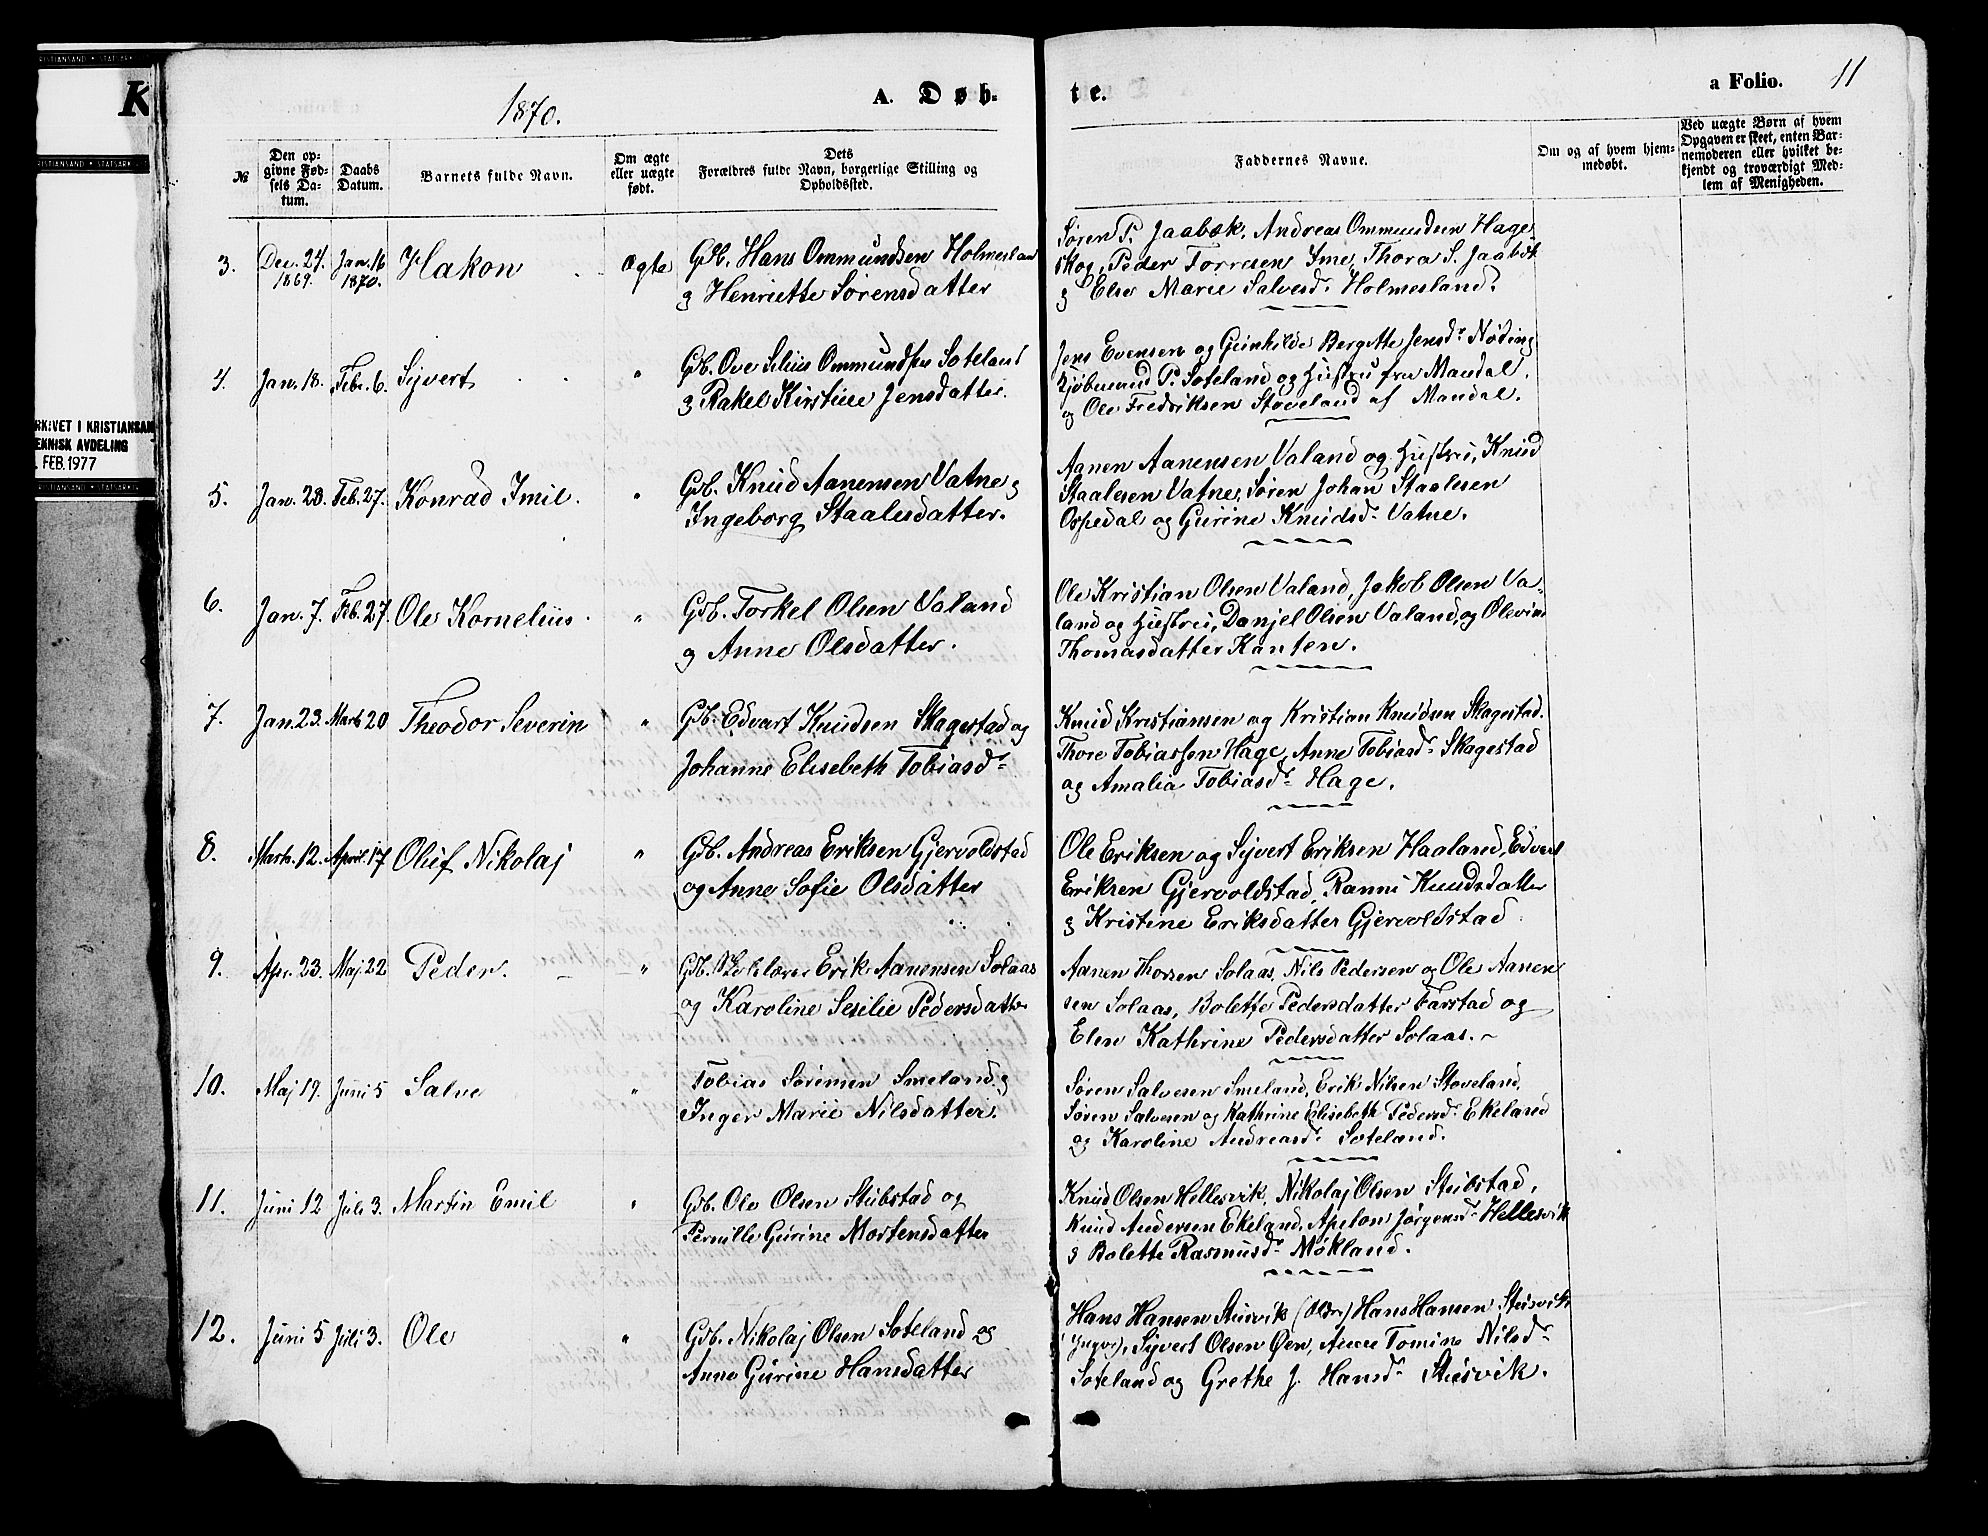 RISTIANSAND • STATSARK
K
RISTIANSAND • STATSARK
RKIVET I KRISTIANSAN
EKNISK AVDELING
. FEB. 1977
RISTIANSAND • STATSARK
1870.
A. Døb-
te.
a Folio. 11
№
Den op-
givne Fød-
sels Da-
tum.
Daabs
Datum.
Barnets fulde Navn.
Om ægte
eller uægte
født.
Dets
Forældres fulde Navn, borgerlige Stilling og
Opholdssted.
Faddernes Navne.
Om og af hvem hjem-
medøbt.
Ved uægte Børn af hvem
Opgaven er skeet, enten Bar-
nemoderen eller hvilket be-
kjendt og troværdigt Med-
lem af Menigheden.
3. Dec. 24. 1869. Jan. 16 1870. Hakon ægte
Gdb. Hans Ommundsen Holmesland
g Henriette Sørensdatter
Søren P. Jaabæk, Andreas Ommundsen Hage-
skog, Peder Torresen Ime, Thora S. Jaabæk
g Else Marie Salvesd. Holmesland.
4. Jan. 18. Febr. 6. Sijvert "
Gdb. Ove Silius Ommundsen Soteland
g Rakel Kirstine Jensdatter.
Jens Evensen og Gunhilde Bergitte Jensdr Nøding
Kjøbmand P. Soteland og Hustru fra Mandal,
og Ole Fredriksen Støveland af Mandal.
5. Jan. 23. Feb. 27. Konrad Imil. "
Gdb. Knud Aanensen Vatne g
Ingeborg Staalesdatter.
Aanen Aanensen Valand og Hustru, Knud
Staalesen Vatne, Søren Johan Staalesen
Ospedal og Gurine Knudsd. Vatne.
6. Jan. 7. Feb. 27. Ole Kornelius. "
Gdb. Torkel Olsen Valand
g Anne Olsdatter.
Ole Kristian Olsen Valand, Jakob Olsen Va-
land og Hustru, Danjel Olsen Valand, og Olevine
Thomasdatter Kanten.
7. Jan. 23. Marts 20 Theodor Severin "
Gdb. Edvart Knudsen Skagestad og
Johanne Elisebeth Tobiasdr
Knud Kristiansen og Kristian Knudsen Skagestad.
Thore Tobiassen Hage, Anne Tobiasdr Skagestad
og Amalia Tobiasdr Hage.
8. Marts. 12. April. 17 Oluf Nikolaj "
Gdb. Andreas Eriksen Gjervoldstad
og Anne Sofie Olsdatter
Ole Eriksen og Sijvert Eriksen Haaland, Edvart
Eriksen Gjervoldstad, Ranni Knudsdatter
g Kristine Eriksdatter Gjervoldstad
9. Apr. 23. Maj. 22 Peder. "
Gdb. Skolelærer Erik Aanensen Solaas
og Karoline Sesilie Pedersdatter
Aanen Thorsen Solaas, Nils Pedersen og Ole Aanen
sen Solaas, Bolette Pedersdatter Farstad og
Elen Kathrine Pedersdatter Solaas.
10. Maj 19. Juni 5 Salve "
Tobias Sørensen Smeland g
Inger Marie Nilsdatter.
Søren Salvesen Smeland, Erik Nilsen Støveland,
Søren Salvesen og Kathrine Elisebeth Pedersd. Ekeland
og Karoline Andreasd. Soteland.
11. Juni 12 Juli 3. Martin Emil "
Gdb. Ole Olsen Stubstad og
Pernille Gurine Mortensdatter
Knud Olsen Hellesvik, Nikolaj Olsen Stubstad,
Knud Andersen Ekeland, Apelon Jørgensdr Hellesvik
g Bolette Rasmusdr Møkland.
12. Juni 5 Juli 3. Ole "
Gdb. Nikolaj Olsen Soteland og
Anne Gurine Hansdatter
Hans Hansen Stusvik (ældre) Hans Hansen Stusvik
(yngre), Sijvert Olsen Øen, Anne Tomine Nilsdr
Soteland og Grethe J. Hansdr Stusvik.